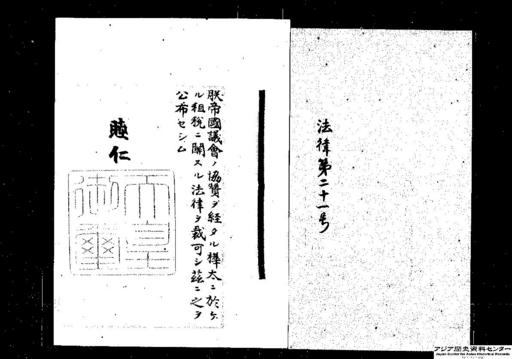 法律第二十一号
朕帝國議會ノ協贊ヲ経タル樺太ニ於ケ
ル租税ニ關スル法律ヲ裁可シ茲ニ之ヲ
公布セシム
睦仁
天皇
御璽
アジア歴史資料センター
Japan Center for Asian Historical Records